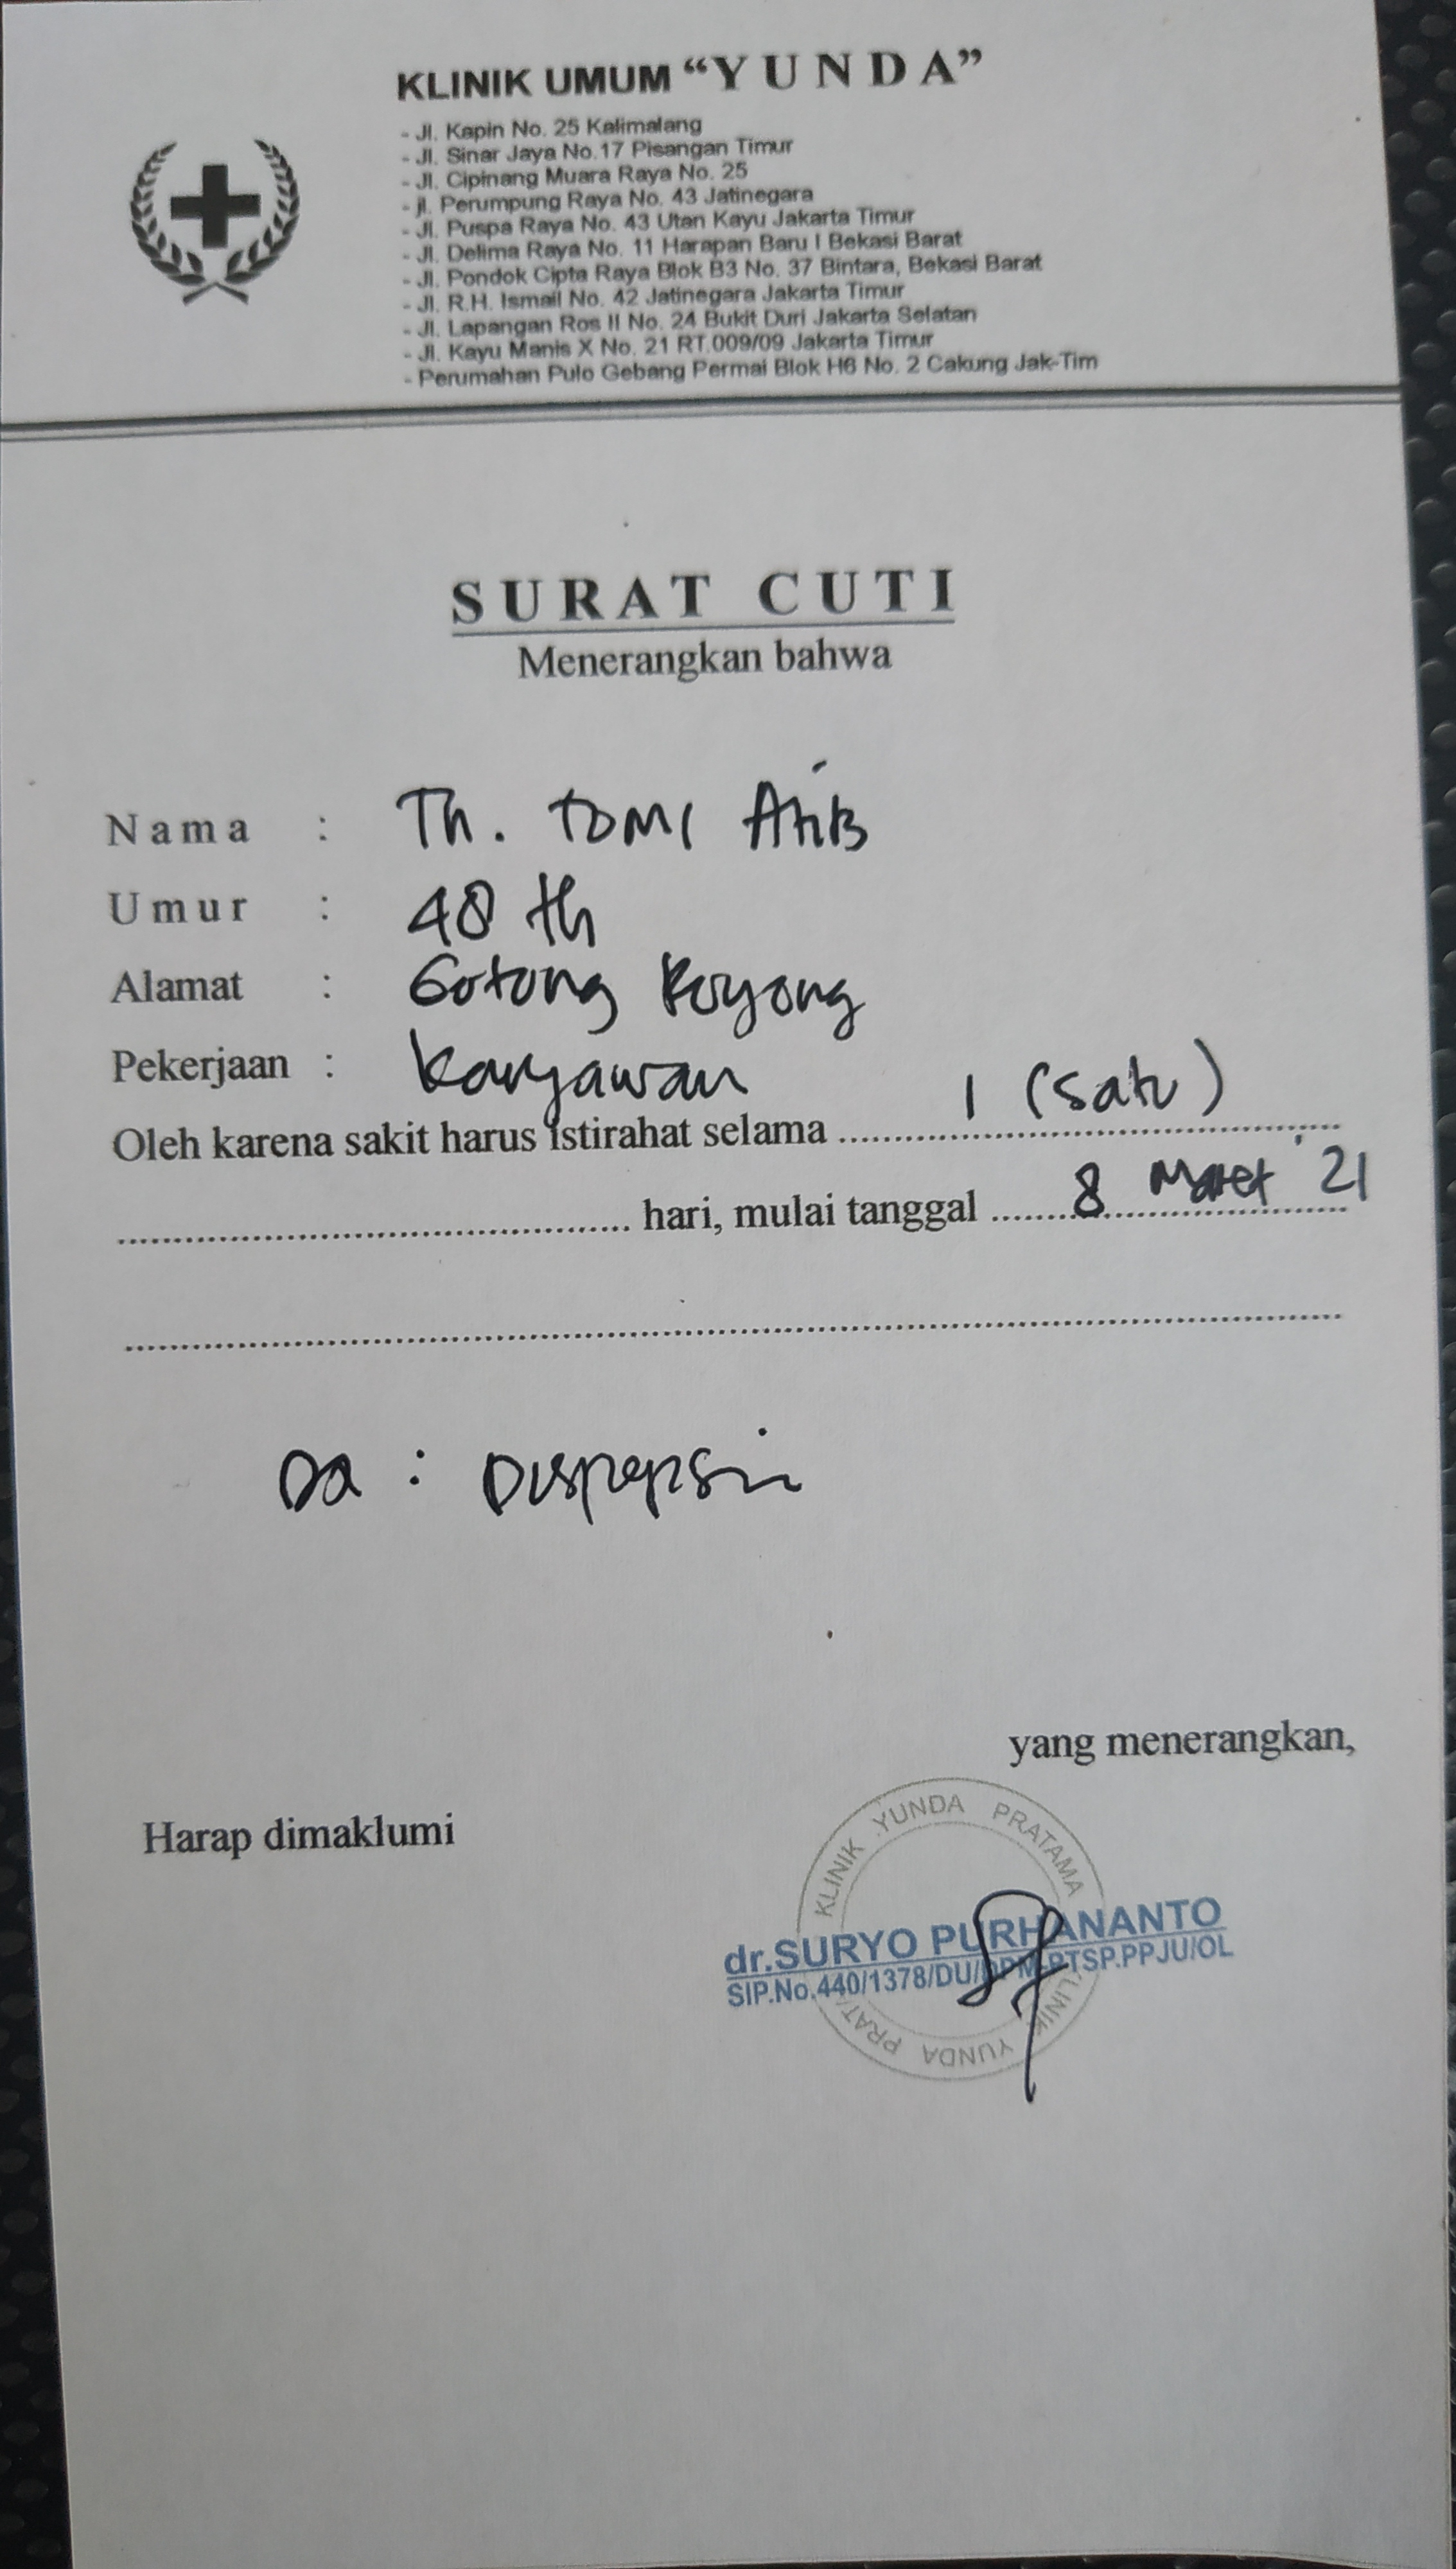 KLINIK UMUM “YUNDA”
- Jl. Kapin No. 25 Kalimalang
- Jl. Sinar Jaya No.17 Pisangan Timur
- Jl. Cipinang Muara Raya No. 25
- jl. Perumpung Raya No. 43 Jatinegara
- Jl. Puspa Raya No. 43 Utan Kayu Jakarta Timur
- Jl. Delima Raya No. 11 Harapan Baru I Bekasi Barat
- Jl. Pondok Cipta Raya Blok B3 No. 37 Bintara, Bekasi Barat
- Jl. R.H. Ismail No. 42 Jatinegara Jakarta Timur
- Jl. Lapangan Ros II No. 24 Bukit Duri Jakarta Selatan
- Jl. Kayu Manis X No. 21 RT.009/09 Jakarta Timur
- Perumahan Pulo Gebang Permai Blok H6 No. 2 Cakung Jak-Tim
SURAT CUTI
Menerangkan bahwa
Nama : Th. Tomi
Umur : 48 th
Alamat : Gotong Royong
Pekerjaan : Karyawan
Oleh karena sakit harus istirahat selama 1 (satu)
hari, mulai tanggal 8 Maret '21
: Dispepsia
yang menerangkan,
Harap dimaklumi
KLINIK YUNDA PRATAMA
dr.SURYO PURHANANTO
SIP.No.440/1378/DU/DPM-PTSP.PPJU/OL
KLINIK YUNDA